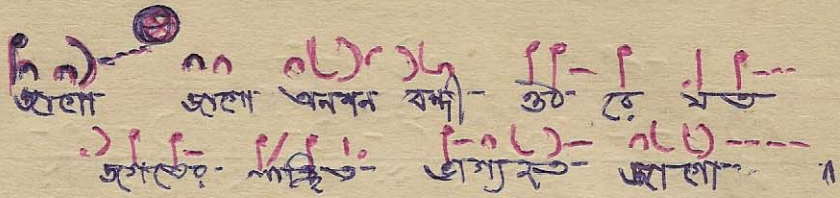 জাগো জাগো অনশন বন্দী ওঠ রে যত
জগতের লাঞ্ছিত ভাগ্যহত জাগো ॥